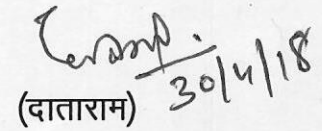 30/4/18
(दाताराम)